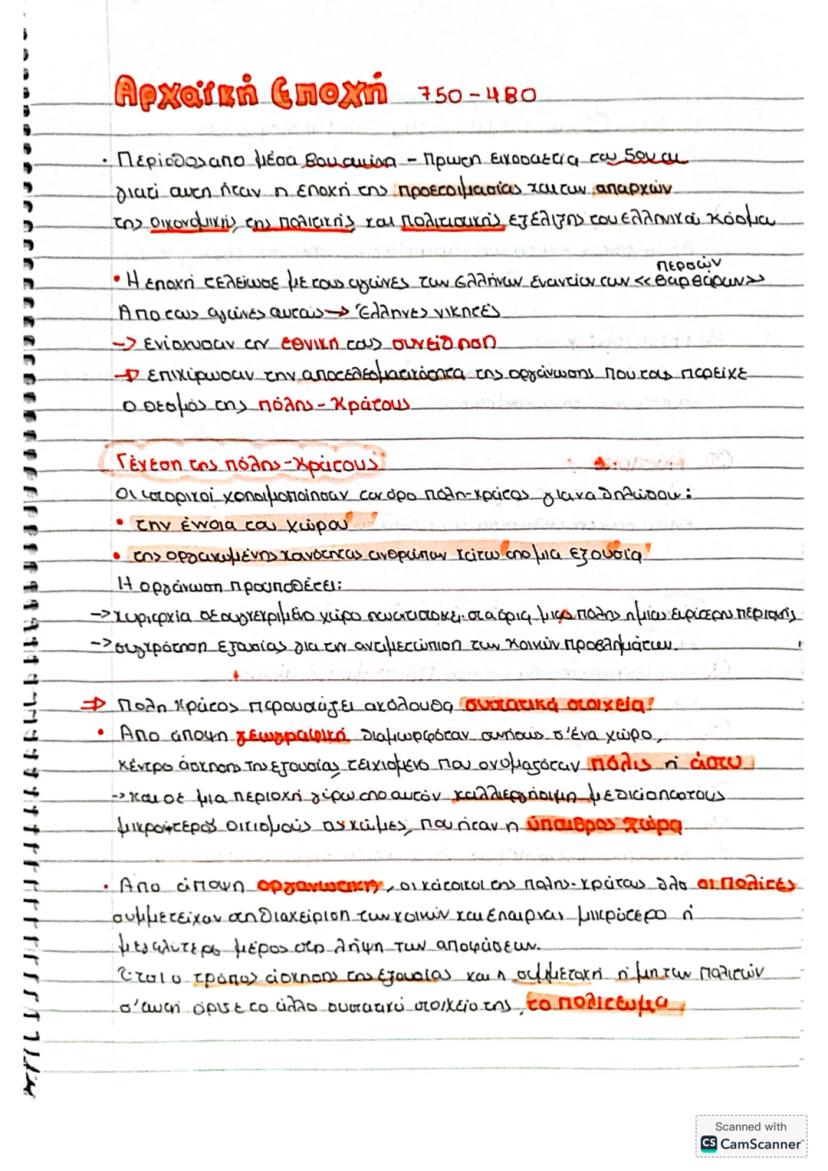 Αρχαϊκή Εποχή 750-480
• Περίοδος απο μέσα 8ου αιώνα - πρωτη εικοσαετία του 5ου αι
γιατί αυτη ήταν η εποχή της προετοιμασίας και των απαρχών
της οικονομικής, της πολιτικής και πολιτισμικής εξέλιξης του ελληνικού κόσμου
περσών
• Η εποχή τελείωσε με τους αγώνες των Ελλήνων εναντίον των «βαρβάρων»
Απο τους αγώνες αυτούς → Έλληνες νικητές
→ ενίσχυσαν την εθνική τους συνείδηση
⇒ επικύρωσαν την αποτελεσματικότητα της οργάνωσης που τους παρείχε
ο θεσμός της πόλης-κράτους
Γένεση της πόλης-κράτους
Οι ιστορικοί χρησιμοποίησαν τον όρο πόλη-κράτος για να δηλώσουν:
• την έννοια του χώρου
• της οργανωμένης κοινότητας ανθρώπων κάτω απο μια εξουσία
Η οργάνωση προυποθέτει:
→ κυριαρχία σε συγκεκριμένο χώρο στα όρια μιας πόλης ή μιας ευρύτερη περιοχής
→ συγκρότηση εξουσίας για την αντιμετώπιση των κοινών προβλημάτων.
⇒ Πόλη κράτος παρουσιάζει ακόλουθα συστατικά στοιχεία:
• Απο άποψη γεωγραφική διαμορφόταν συνήθως σ'ένα χώρο,
κέντρο άσκησης της εξουσίας, τειχισμένο που ονομαζόταν πόλις ή άστυ
→ και σε μια περιοχή γύρω απο αυτόν καλλιεργήσιμη με
μικρότερους οικισμούς τις κώμες, που ήταν η ύπαιθρος χώρα
• Απο άποψη οργανωτική, οι κάτοικοι της πόλης-κράτους δλδ οι πολίτες
συμμετείχαν στη διαχείριση των κοινών και έπαιρναν μικρότερο ή
μεγαλύτερο μέρος στη λήψη των αποφάσεων.
Έτσι ο τρόπος άσκησης της εξουσίας και η συμμετοχή ή μη των πολιτών
σ'αυτή όρισε το άλλο συστατικό στοιχείο της, το πολίτευμα.
Scanned with
CS CamScanner